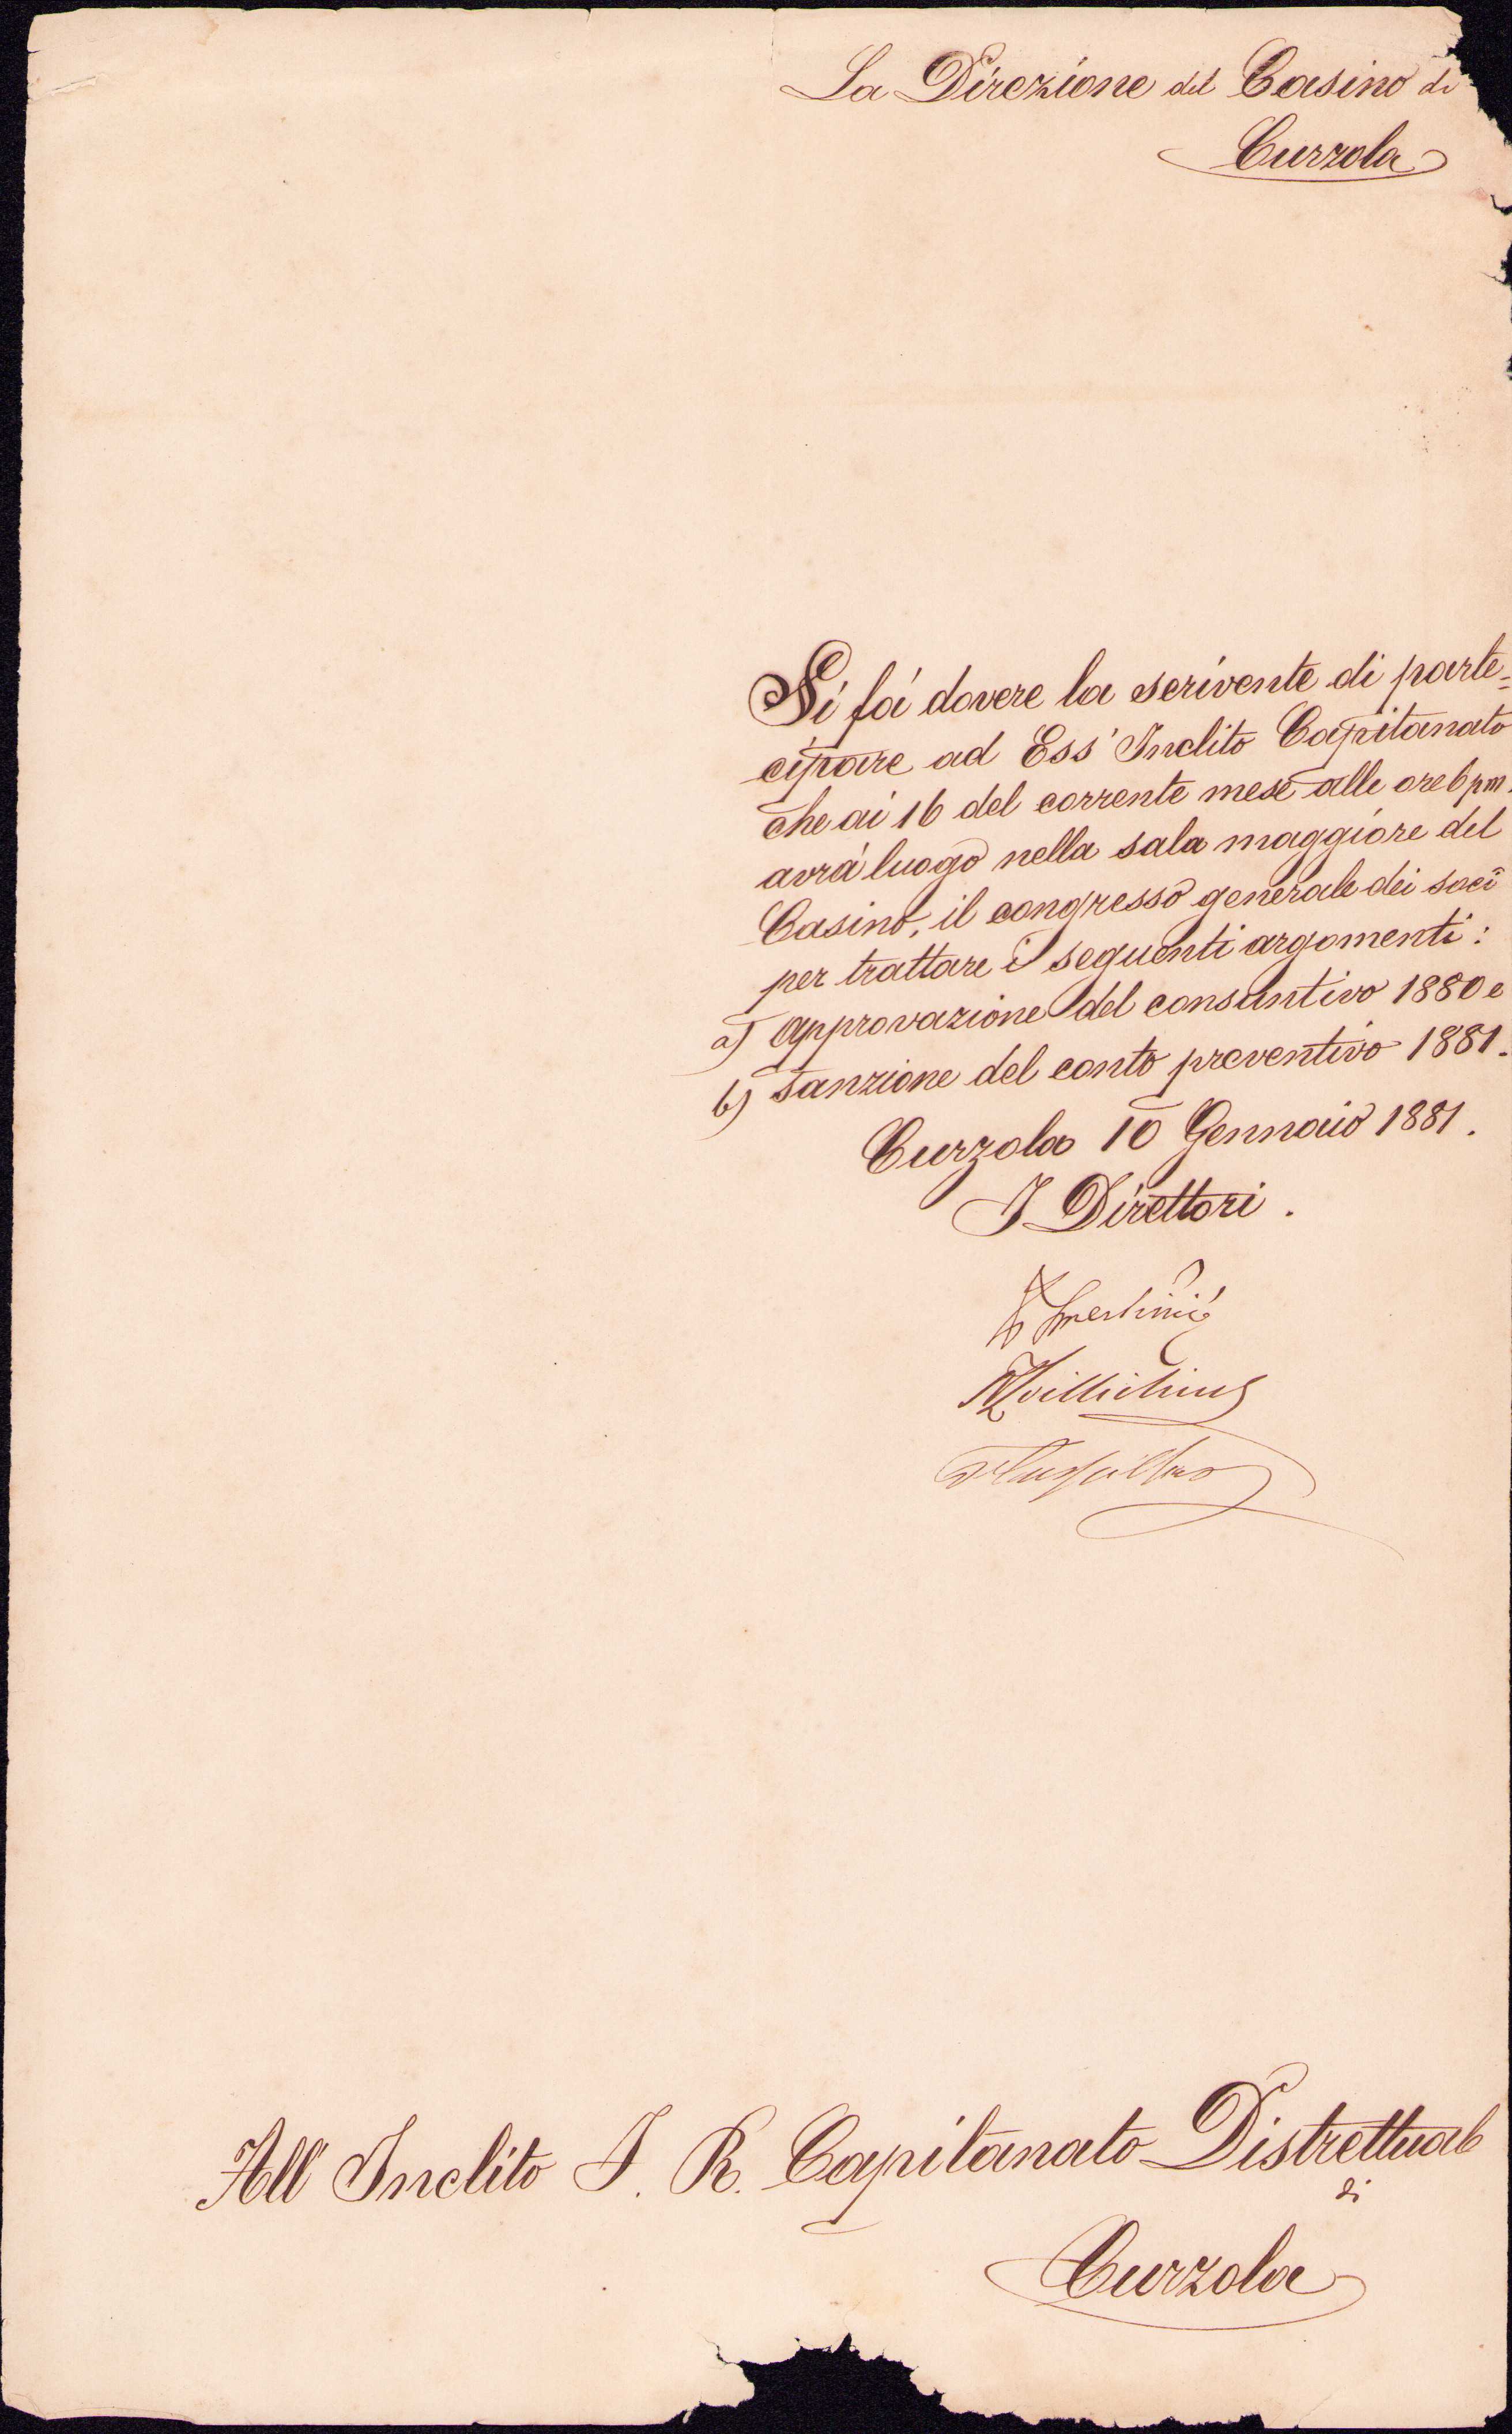 La Direzione del Casino di
Curzola
Si fá dovere la scrivente di parte=
cipare ad Ess' Inclito Capitanato
che ai 16 del corrente mese alle ore 6 pm.
avrá luogo nella sala maggiore del
Casino, il congresso generale dei soci
per trattare i seguenti argomenti:
a) approvazione del consuntivo 1880 e
b) sanzione del conto preventivo 1881.
Curzola 10 Gennaio 1881.
I Direttori.
All' Inclito I. R. Capitanato Distrettuale
di
Curzola